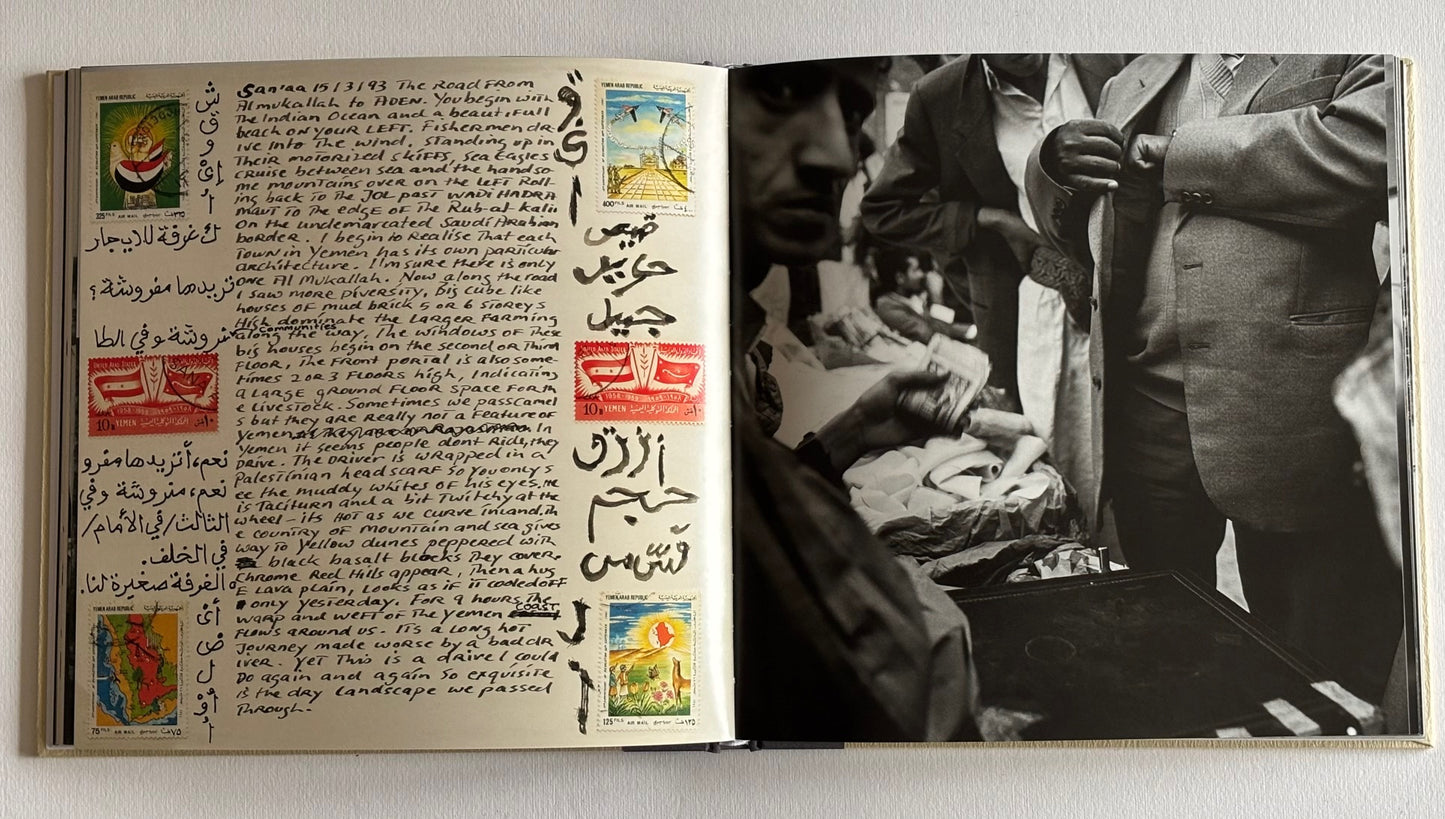 San'aa 15/3/93 The Road From
Almukallah to ADEN. You begin with
The Indian Ocean and a beautifull
beach on YOUR LEFT. Fishermen dr-
ive into The wind, standing up in
Their motorized skiffs, sea Eagles
cruise between sea and the handso-
me mountains over on the left Roll-
ing back to The JOL past WADI HADRA
MAUT To the edge of The Rub-at Kalii
On the undemarcated Saudi Arabian
border. I begin to Realise That each
Town in Yemen has its own particular
architecture. I'm sure there is only
one Al Mukallah. Now along the road
I saw more Diversity, big cube like
houses of mud brick 5 or 6 storeys
High dominate the Larger Farming
communities
along the way, The windows of These
big houses begin on the second or Third
Floor, The Front portal is also some-
times 2 or 3 Floors high, Indicating
a Large ground Floor space For th
e Livestock. Sometimes we pass camel
s but they are Really not a Feature of
Yemen In
Yemen it seems people dont Ride, they
Drive. The Driver is wrapped in a
Palestinian head scarf so you only s
ee the muddy whites of his eyes. He
is Taciturn and a bit Twitchy at the
wheel - its Hot as we curve inland. Th
e country of mountain and sea gives
way to Yellow dunes peppered with
black basalt blocks They cover.
Chrome Red Hills appear, Then a hug
E Lava plain, Looks as if it cooled off
only yesterday. For 9 hours The
warp and weft of The Yemen COAST
Flows around us. It's a long hot
Journey made worse by a bad dr
iver. Yet This is a drive I could
Do again and again so exquisite
is the dry landscape we passed
Through.
ك غرفة للايجار
تريدها مفروشة؟
مفروشة وفي الطا
نعم، أتريدها مفرو
نعم، مفروشة وفي
الثالث/في الأمام/
في الخلف.
ه الغرفة صغيرة لنا.
قميص
جميل
أزرق
حجم
YEMEN ARAB REPUBLIC
325 FILS AIR MAIL
YEMEN ARAB REPUBLIC
400 FILS AIR MAIL
1958-1959
10 B YEMEN
1958-1959
10 B YEMEN
YEMEN ARAB REPUBLIC
75 FILS AIR MAIL ٧٥
YEMEN ARAB REPUBLIC
125 FILS AIR MAIL ١٢٥